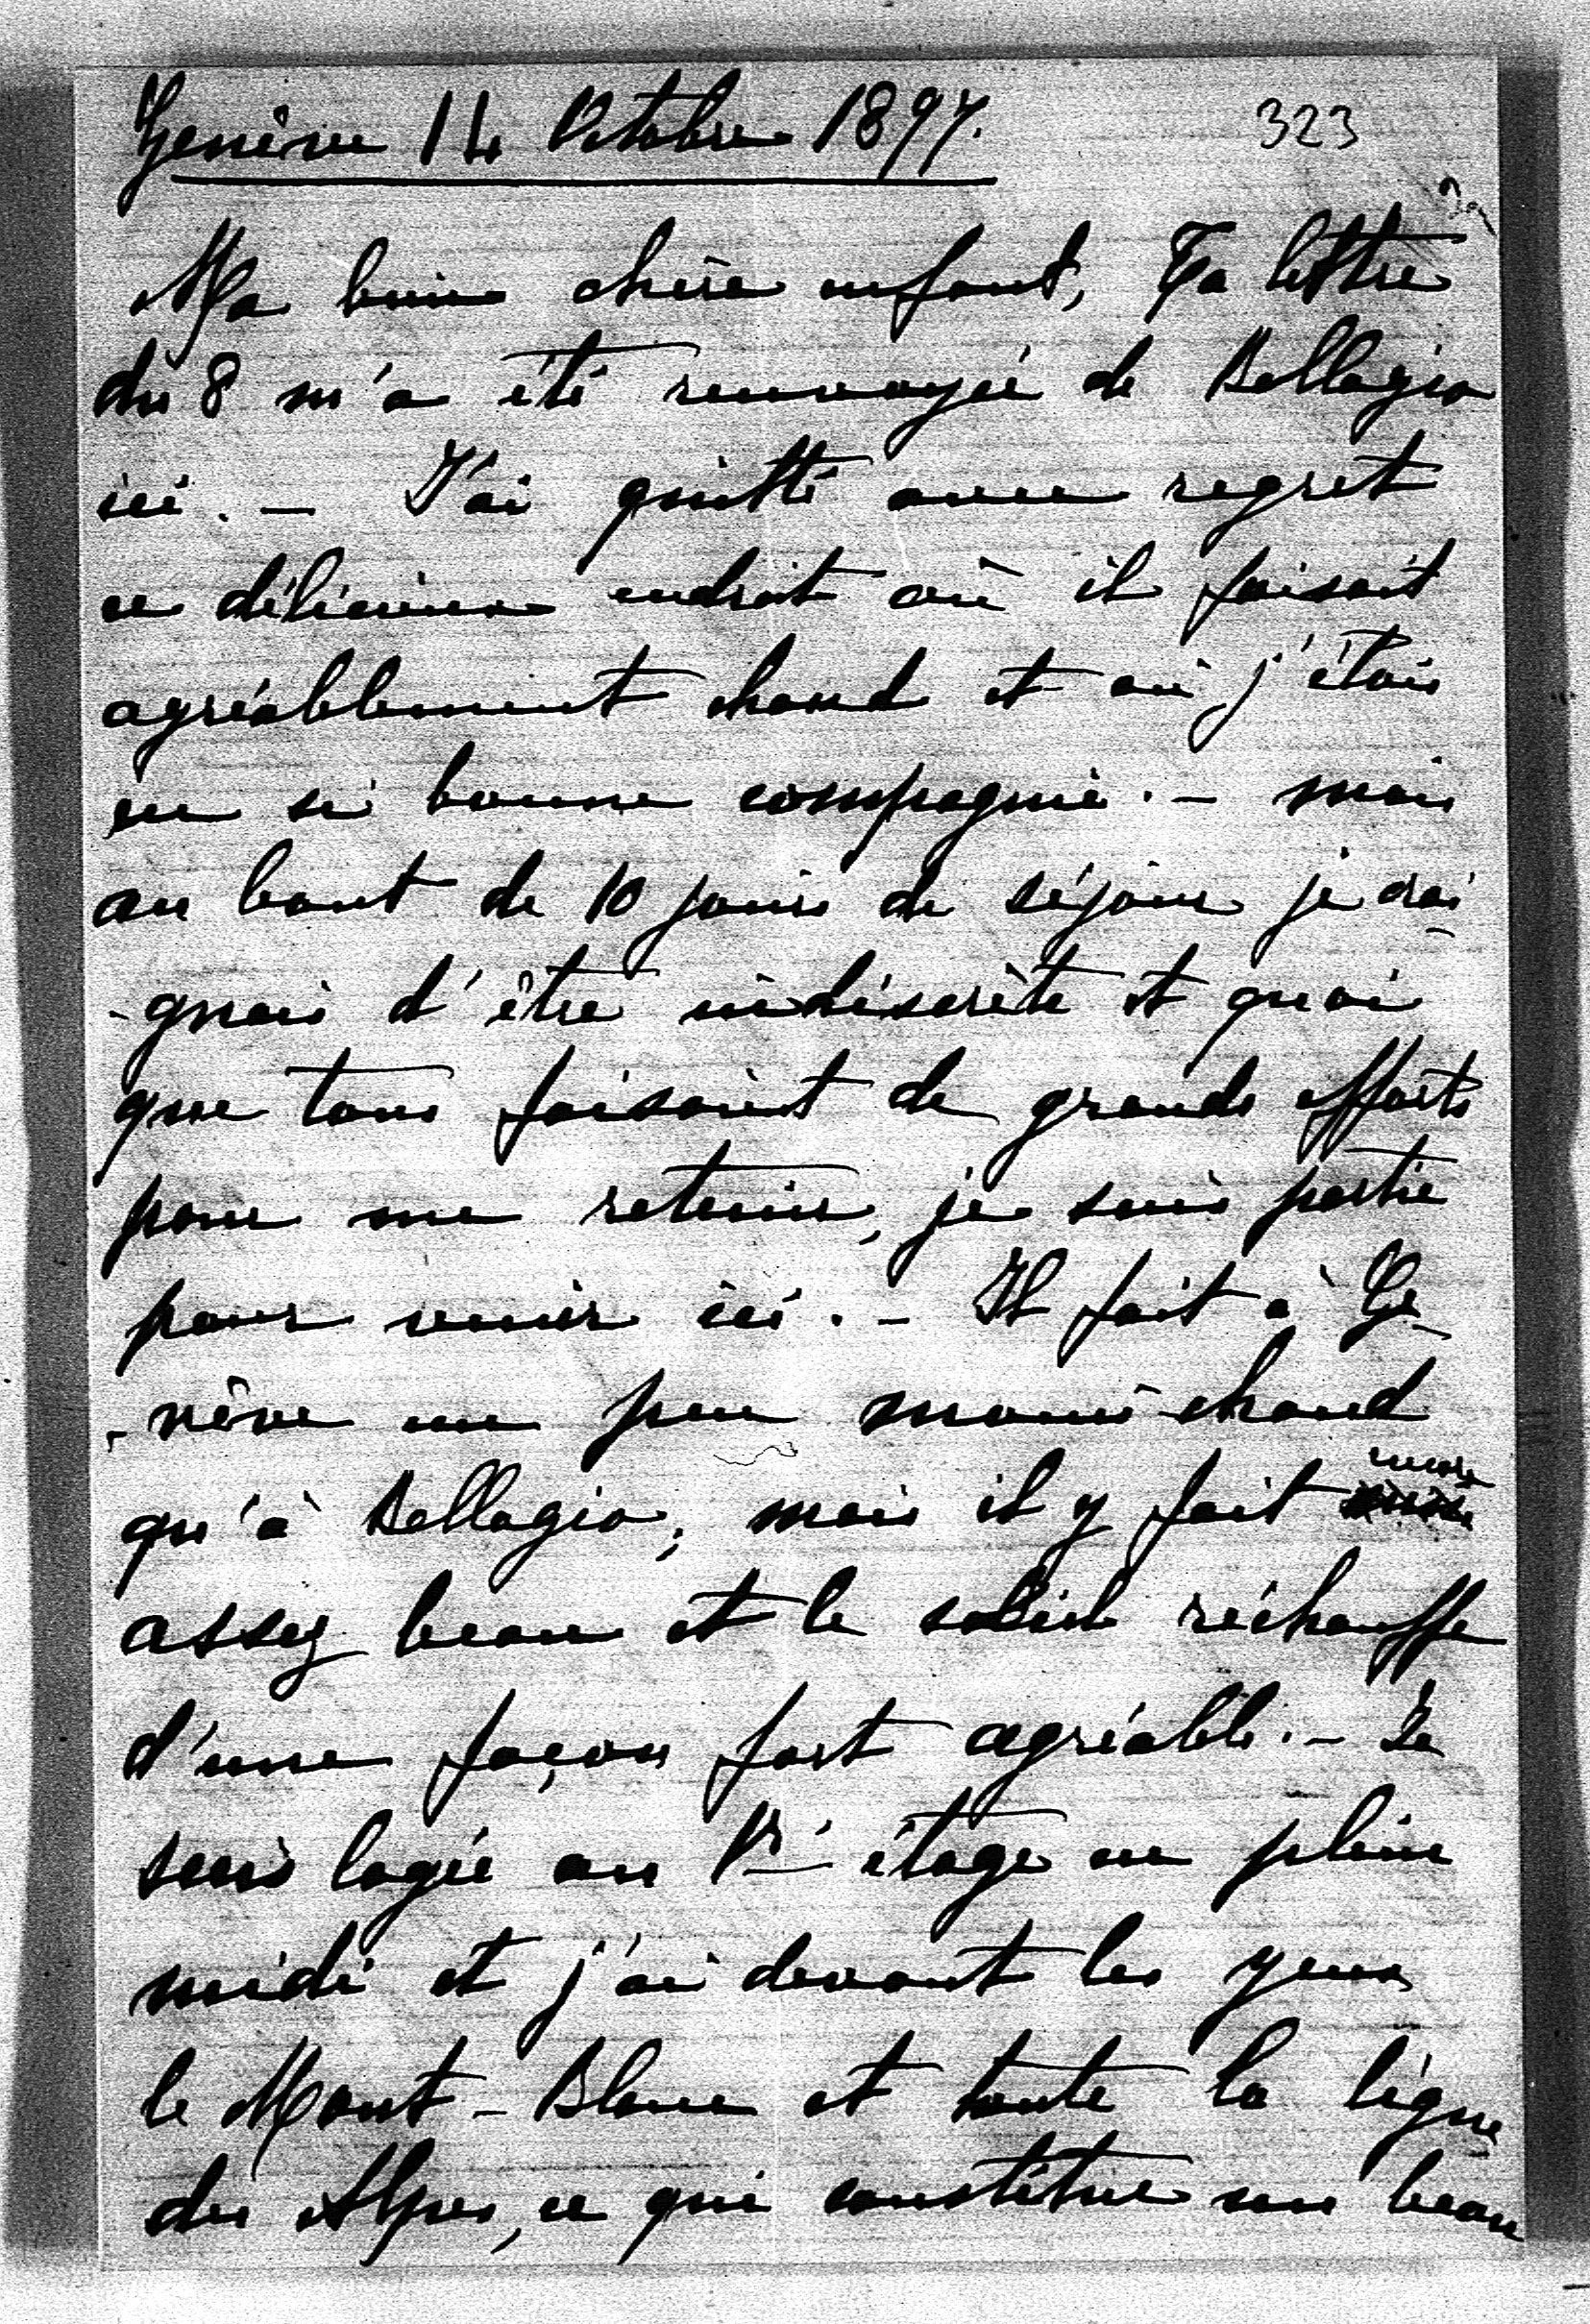 Genève 14 Octobre 1897.
323
Ma bien chère enfant, Ta lettre
du 8 m'a été renvoyée de Bellagio
ici. – J'ai quitté avec regret
ce délicieux endroit où il faisait
agréablement chaud et où j'étais
en si bonne compagnie. – mais
au bout de 10 jours de séjour je crai
-gnais d'être indiscrète et quoi
que tous faisaient de grands efforts
pour me retenir, je suis partie
pour venir ici. – Il fait à Ge
-nève un peu moins chaud
qu'à Bellagio, mais il y fait encore
assez beau et le soleil réchauffe
d'une façon fort agréable. – Je
suis logée au 1er étage en plein
midi et j'ai devant les yeux
le Mont-Blanc et toute la ligne
des Alpes, ce qui constitue un beau